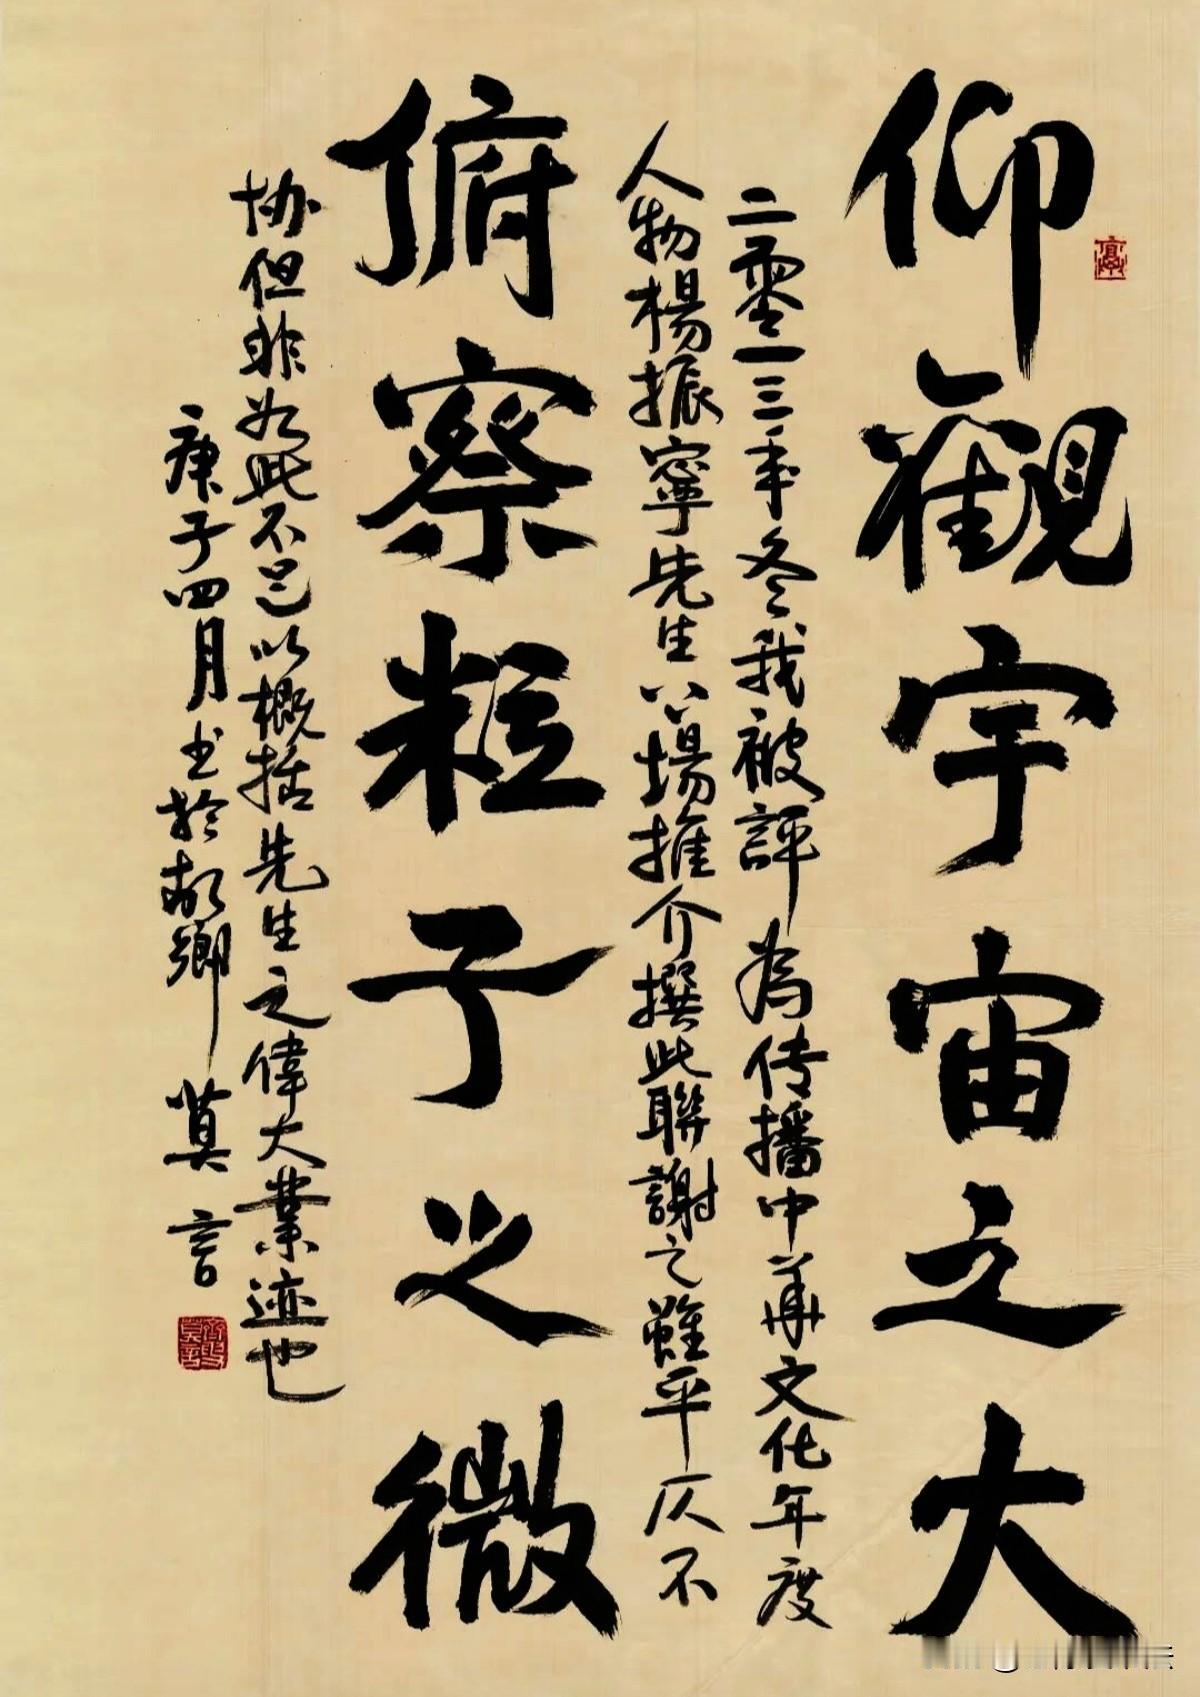 仰觀宇宙之大
二零一三年冬我被評為传播中華文化年度
人物楊振寧先生公場推介撰此聯謝之雖平仄不
俯察粒子之微
协但非如此不足以概括先生之偉大業迹也
庚子四月书於故鄉 莫言